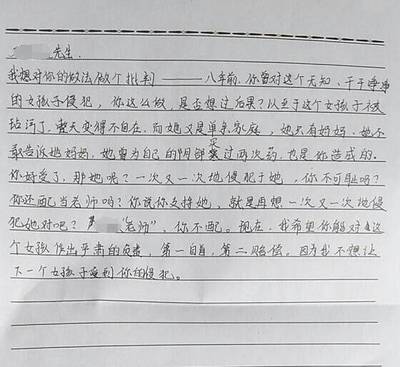 先生.
我想对你的做法做个批判——八年前,你曾对这个无知、干干净净
的女孩子侵犯,你这么做,是否想过后果?以至于这个女孩子被
玷污了,整天变得不自在,而她又是单亲家庭,她只有妈妈,她不
敢告诉她妈妈,她曾为自己的阴部买过两次药,也是你造成的。
你好受了,那她呢?一次又一次地侵犯于她,你不可耻吗?
你还配当老师吗?你说你支持她,就是再想一次又一次地侵
犯她对吧?"老师",你不配。现在,我希望你能对这
个女孩作出平肃的负责,第一自首,第二赔偿。因为我不想让
下一个女孩子受到你的侵犯。